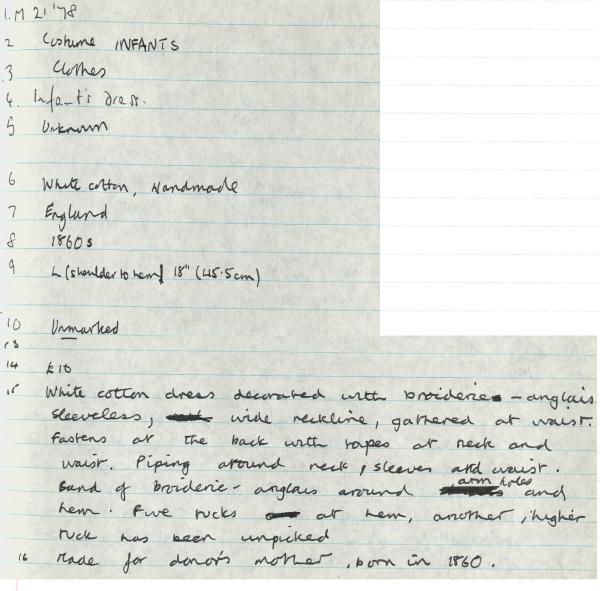 1. M 21 '78
2 Costume INFANTS
3 Clothes
4. Infant's dress.
5 Unknown
6 White cotton, Handmade
7 England
8 1860s
9 L (shoulder to hem) 18" (45.5cm)
10 Unmarked
13
14 £10
15 White cotton dress decorated with broderie - anglais
Sleeveless, wide neckline, gathered at waist.
Fastens at the back with tapes at neck and
waist. Piping around neck, sleeves and waist.
Band of broiderie - anglais around arm holes and
hem. Five tucks at hem, another, higher
tuck has been unpicked
16 Made for donor's mother, born in 1860.